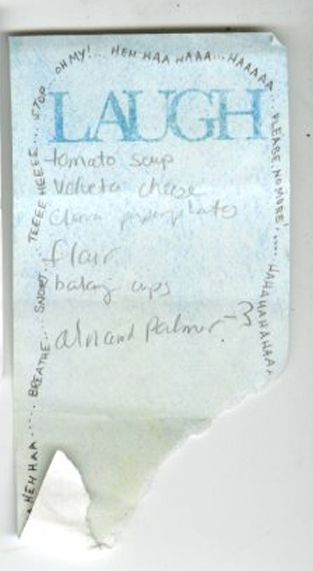 HEH HAA..... BREATHE... SNORT... TEEEE HEEEE.... STOP... OH MY!... HEH HAA HAAA... HAAAAA... PLEASE, NO MORE!..... HAHAHAHAHAAA
LAUGH
tomato soup
Velveta cheese
flair
baking cups
almand Palmer -3